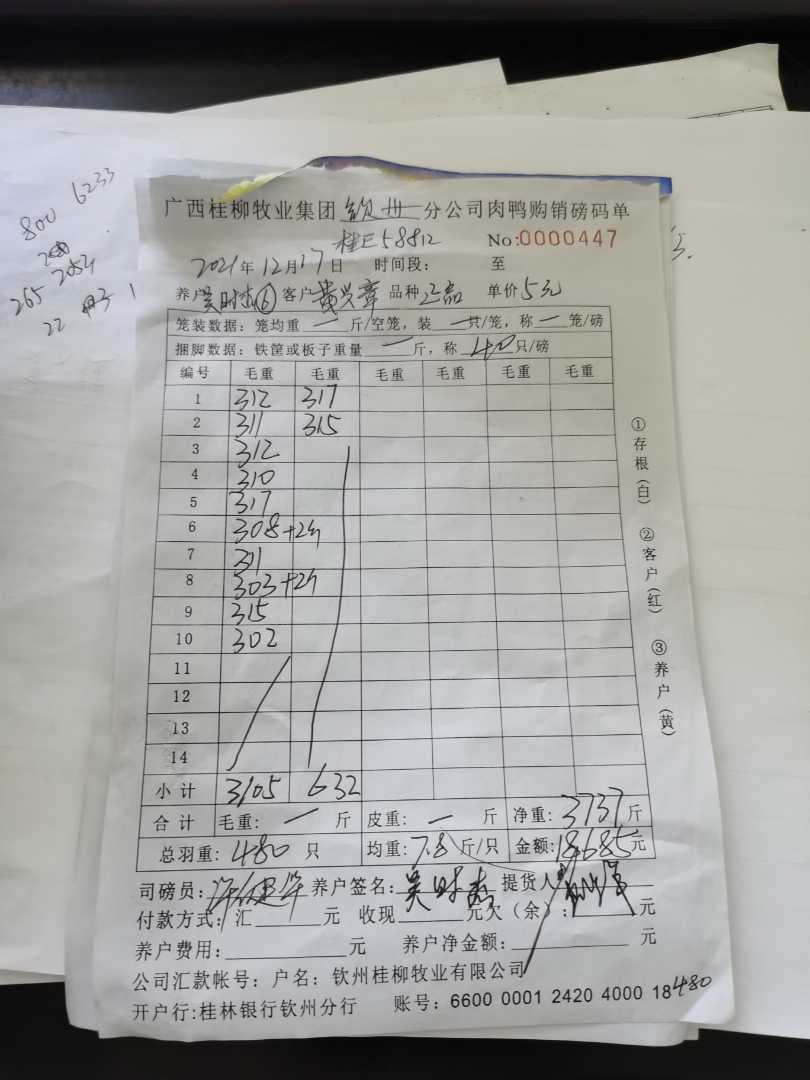 广西桂柳牧业集团 钦州 分公司肉鸭购销磅码单
桂E58812 No:0000447
2021年12月17日 时间段: 至
养户 吴时杰⑥ 客户 黄兴章 品种 正品 单价 5元
笼装数据: 笼均重 — 斤/空笼, 装 — 只/笼, 称 — 笼/磅
捆脚数据: 铁筐或板子重量 — 斤, 称 40 只/磅
编号 毛重 毛重 毛重 毛重 毛重 毛重
1 312 317
2 311 315
3 312
4 310
5 317
6 308+2斤
7 311
8 303+2斤
9 315
10 302
11
12
13
14
小计 3105 632
合计 毛重: — 斤 皮重: — 斤 净重: 3737 斤
总羽重: 480 只 均重: 7.8 斤/只 金额: 18685 元
司磅员: 养户签名: 吴时杰 提货人
付款方式: 汇 元 收现 元欠(余): 元
养户费用: 元 养户净金额: 元
公司汇款帐号: 户名: 钦州桂柳牧业有限公司
开户行:桂林银行钦州分行 账号: 6600 0001 2420 4000 18 480
①存根(白) ②客户(红) ③养户(黄)
800 6233
265
22